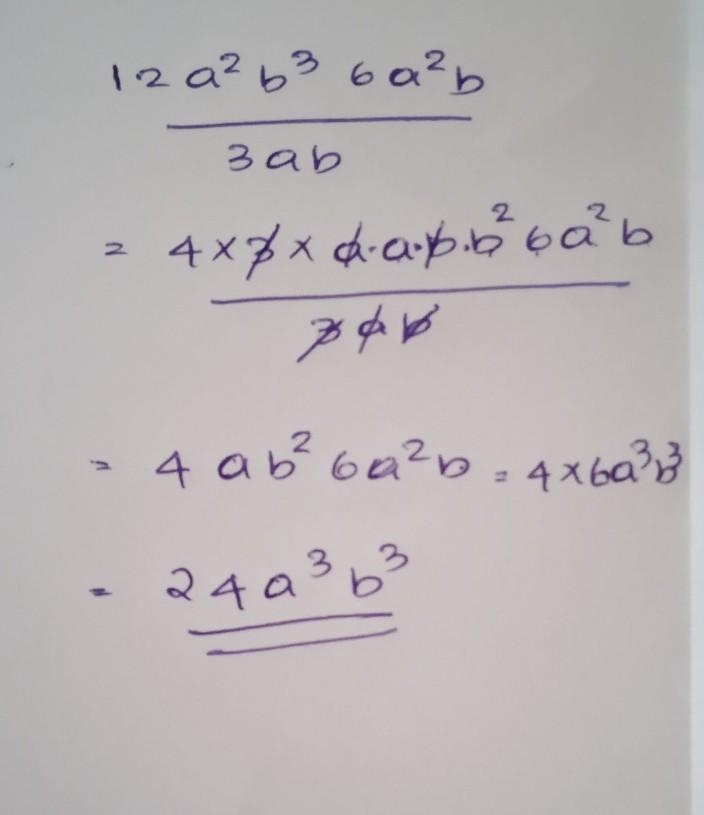 12a²b³ 6a²b
3ab
= 4×3×a·a·b·b² 6a²b
3ab
= 4ab² 6a²b = 4×6a³b³
= 24a³b³